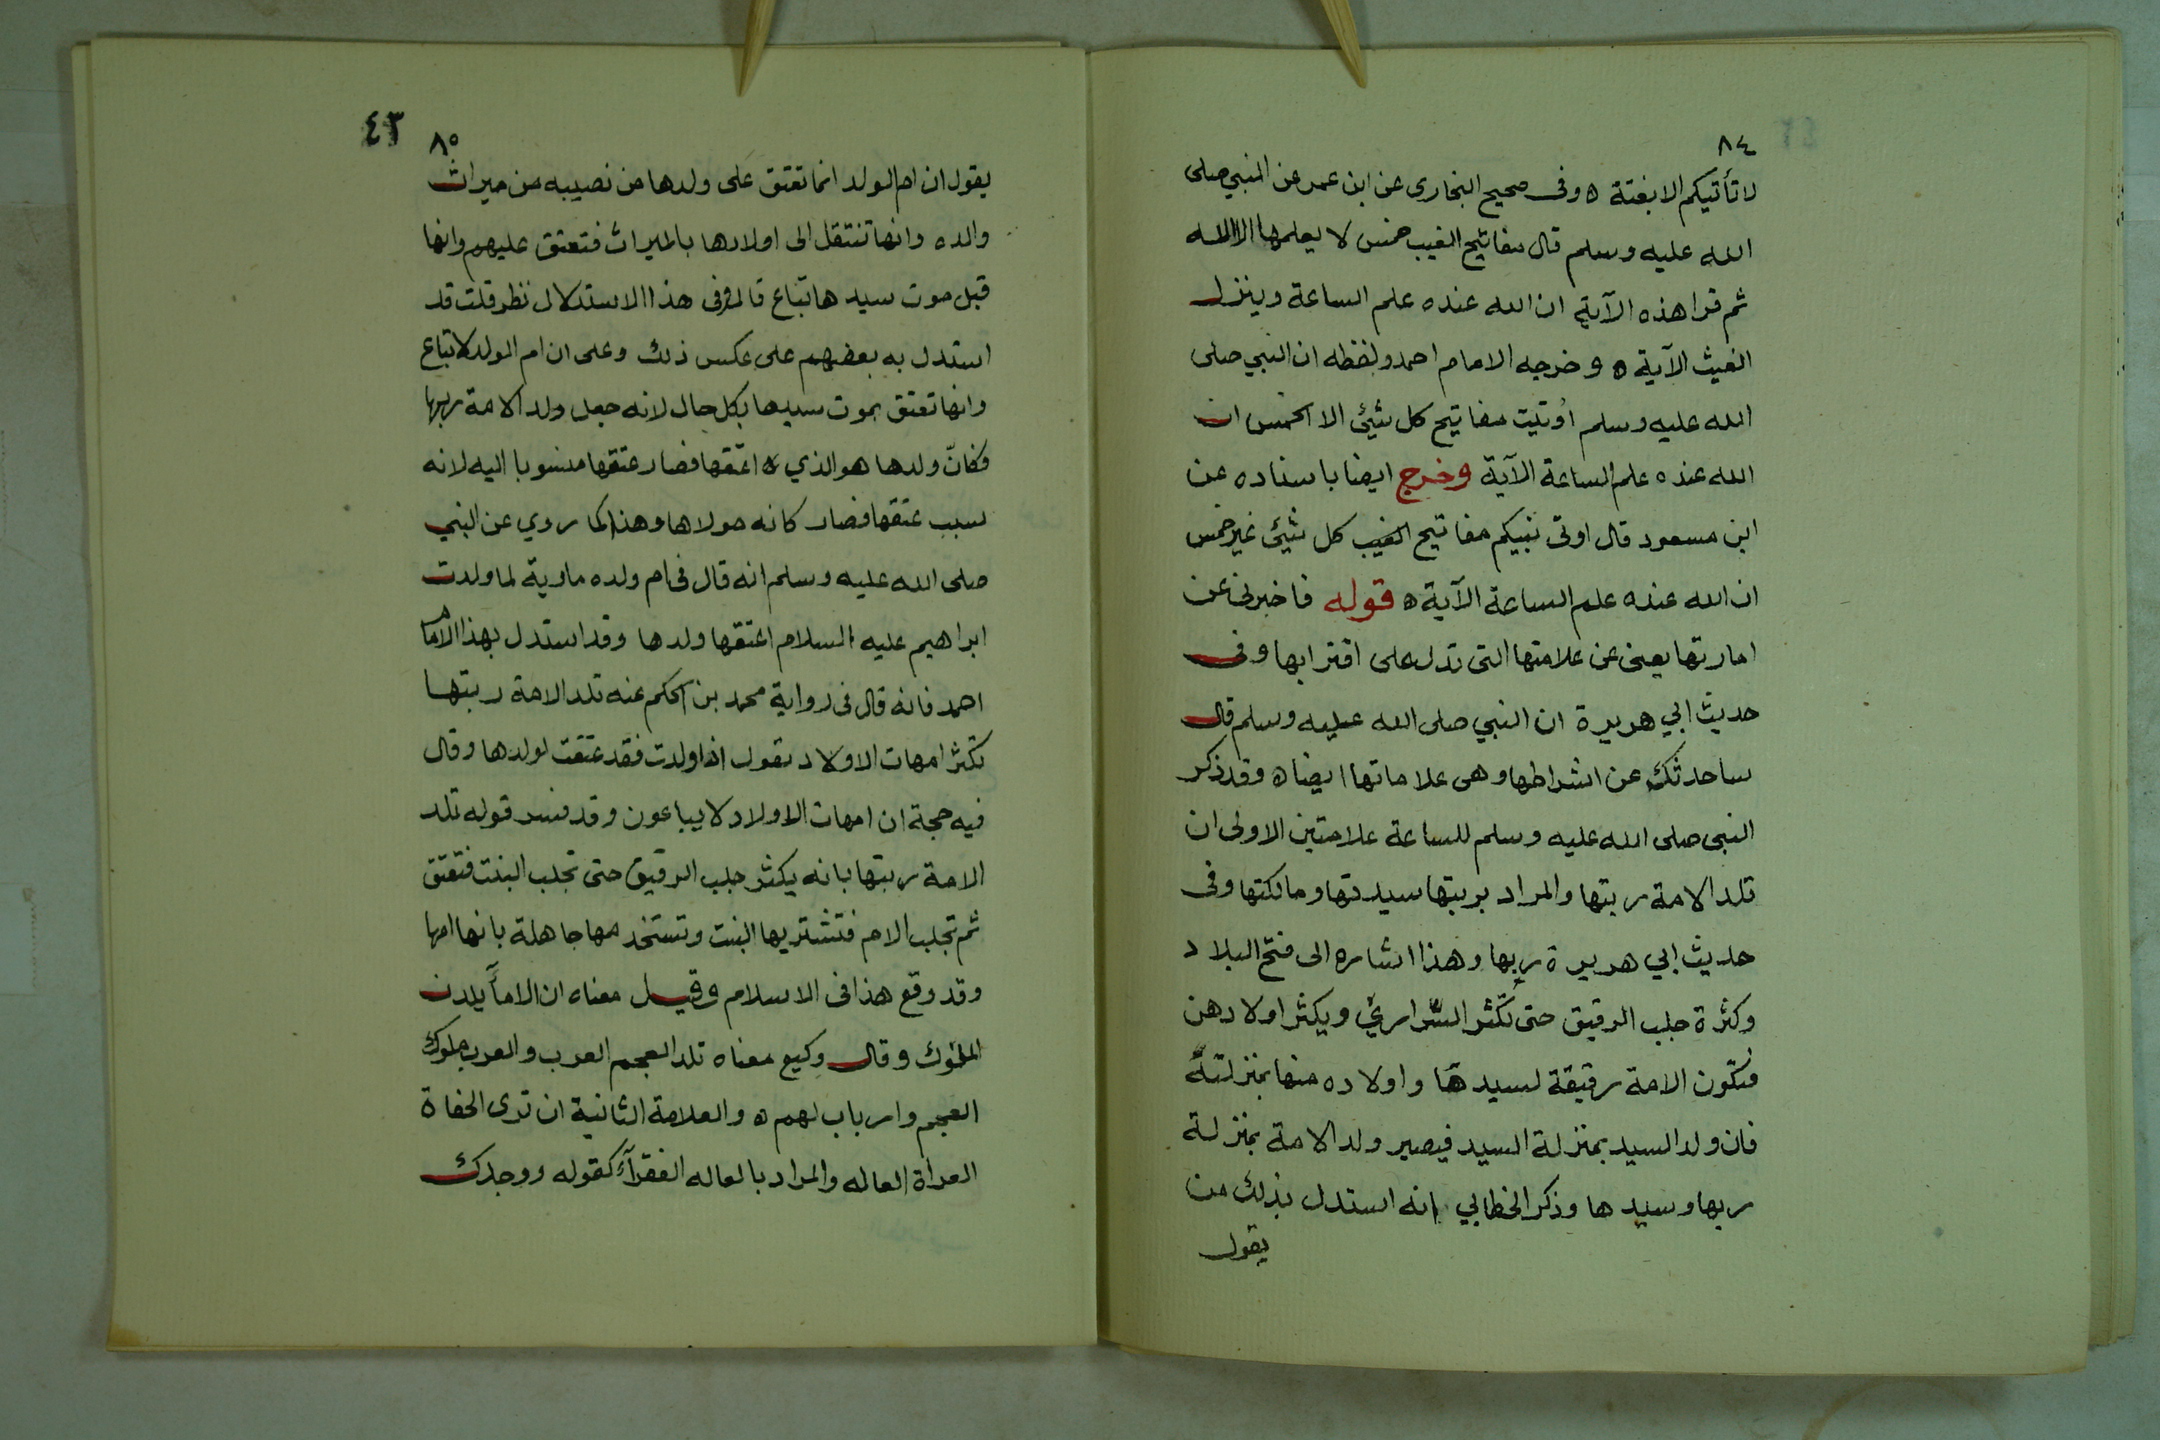 ٨٤
لا تأتيكم الا بغتة ه وفى صحيح البخارى عن ابن عمر عن النبي صلى
الله عليه وسلم قال مفاتيح الغيب خمس لا يعلمها الا الله
ثم قرا هذه الآية ان الله عنده علم الساعة وينزل
الغيث الآية ه وخرجه الامام احمد ولفظه ان النبي صلى
الله عليه وسلم أوتيت مفاتيح كل شيئ الا الخمس ان
الله عنده علم الساعة الآية وخرج ايضا باسناده عن
ابن مسعود قال اوتى نبيكم مفاتيح الغيب كل شيئ غير خمس
ان الله عنده علم الساعة الآية ه قوله فاخبرنى عن
امارتها يعنى عن علامتها التى تدل على اقترابها وفى
حديث ابي هريرة ان النبي صلى الله عليه وسلم قال
ساحدثك عن اشراطها وهى علاماتها ايضا ه وقد ذكر
النبى صلى الله عليه وسلم للساعة علامتين الاولى ان
تلد الامة ربتها والمراد بربتها سيدتها ومالكتها وفى
حديث ابي هريرة ربها وهذا اشاره الى فتح البلاد
وكثرة جلب الرقيق حتى تكثر السراري ويكثر اولادهن
فتكون الامة رقيقة لسيدها واولاده منها بمنزلته
فان ولد السيد بمنزلة السيد فيصير ولد الامة بمنزلة
ربها وسيدها وذكر الخطابي انه استدل بذلك من
يقول
٤٣
٨٥
يقول ان ام الولد انما تعتق على ولدها من نصيبه من ميراث
والده وانها تنتقل الى اولادها بالميراث فتعتق عليهم وانها
قبل موت سيدها تباع قال وفى هذا الاستدلال نظر قلت قد
استدل به بعضهم على عكس ذلك وعلى ان ام الولد لا تباع
وانها تعتق بموت سيدها بكل حال لانه جعل ولد الامة ربها
فكانّ ولدها هو الذي اعتقها فصار عتقها منسوبا اليه لانه
سبب عتقها فصار كانه مولاها وهذا كما روي عن النبي
صلى الله عليه وسلم انه قال فى ام ولده مارية لما ولدت
ابراهيم عليه السلام اعتقها ولدها وقد استدل بهذا الامام
احمد فانه قال فى رواية محمد بن الحكم عنه تلد الامة ربتها
تكثر امهات الاولاد يقول اذا ولدت فقد عتقت لولدها وقال
فيه حجة ان امهات الاولاد لا يباعون وقد فسر قوله تلد
الامة ربتها بانه يكثر جلب الرقيق حتى تجلب البنت فتعتق
ثم تجلب الام فتشتريها البنت وتستخدمها جاهلة بانها امها
وقد وقع هذا فى الاسلام وقيل معناه ان الامآ يلدن
الملوك وقال وكيع معناه تلد العجم العرب والعرب ملوك
العجم وارباب لهم ه والعلامة الثانية ان ترى الحفاة
العراة العاله والمراد بالعاله الفقرآء كقوله ووجدك